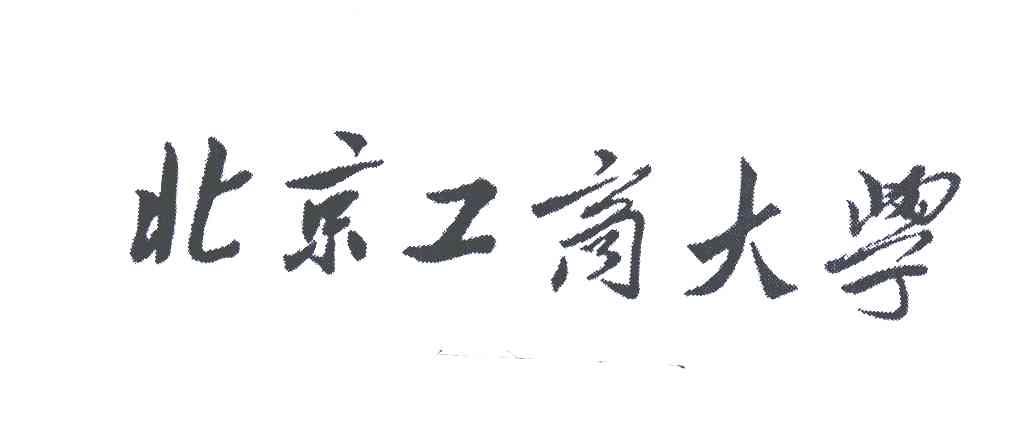 北京工商大學